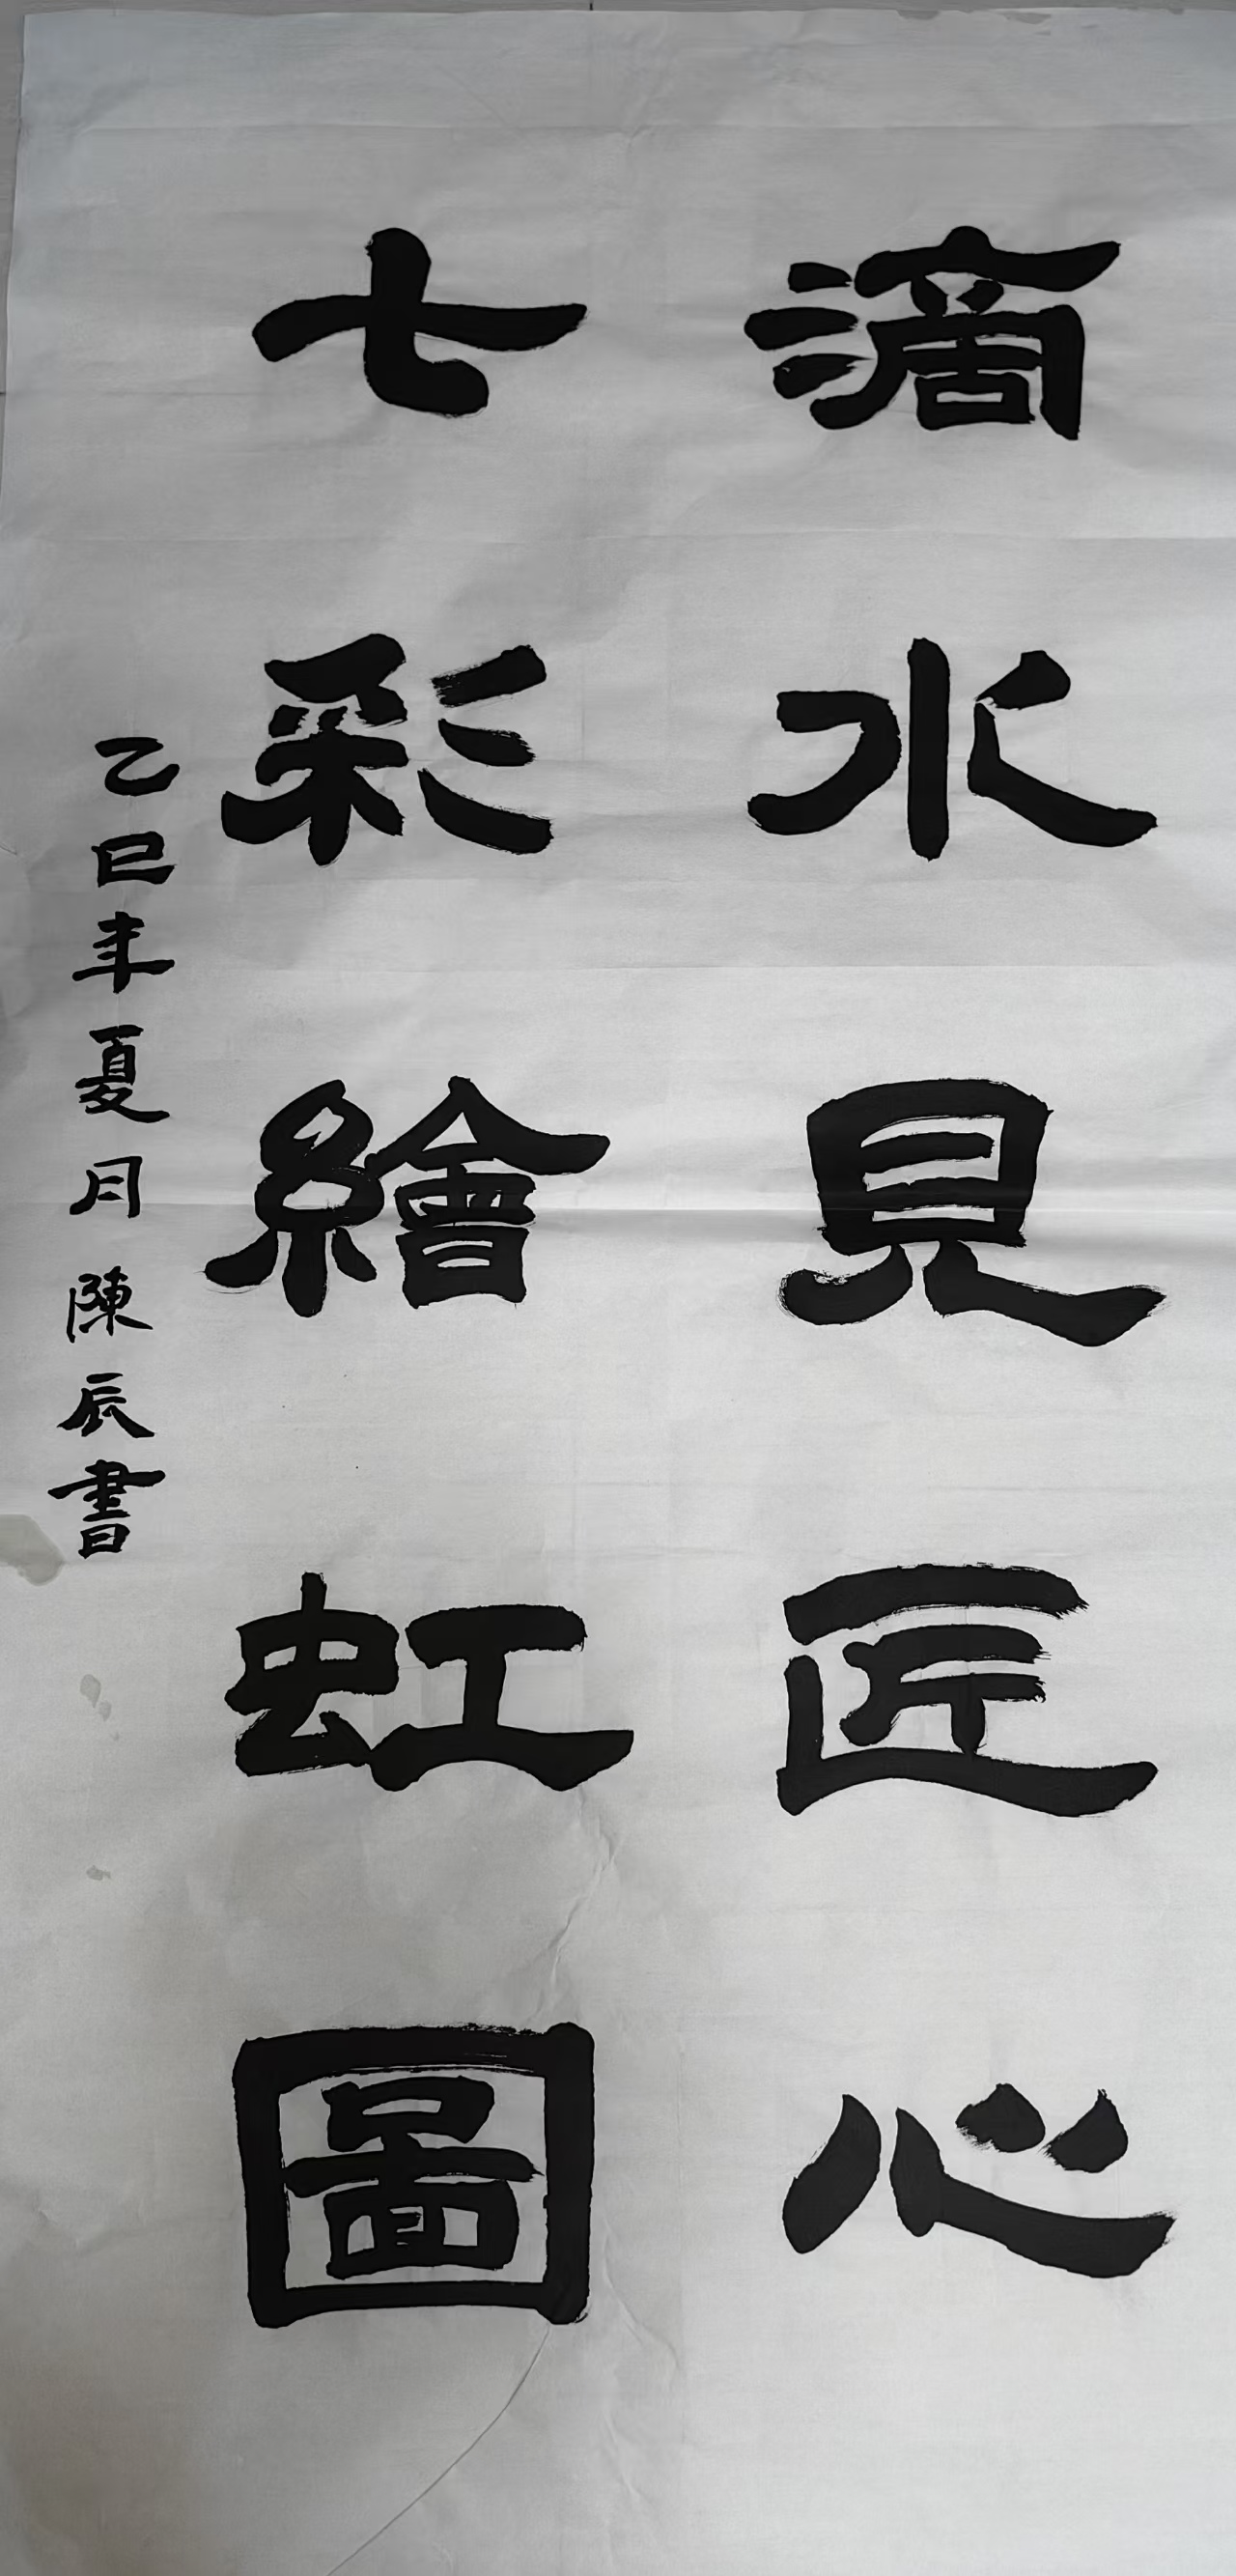 滴水見匠心
七彩繪虹圖
乙巳年夏月陳辰書